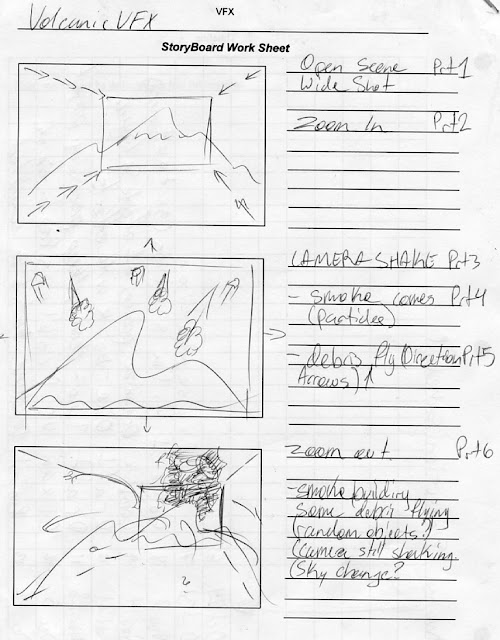 VFX
Volcanic VFX
StoryBoard Work Sheet
Open Scene Prt1
Wide Shot
Zoom In Prt2
CAMERA SHAKE Prt3
- smoke comes Prt4
(particles)
- debris fly (Direction Prt5
Arrows)↑
Zoom out Prt6
-smoke building
some debris flying
(random objects?)
(camera still shaking
(Sky change?
?